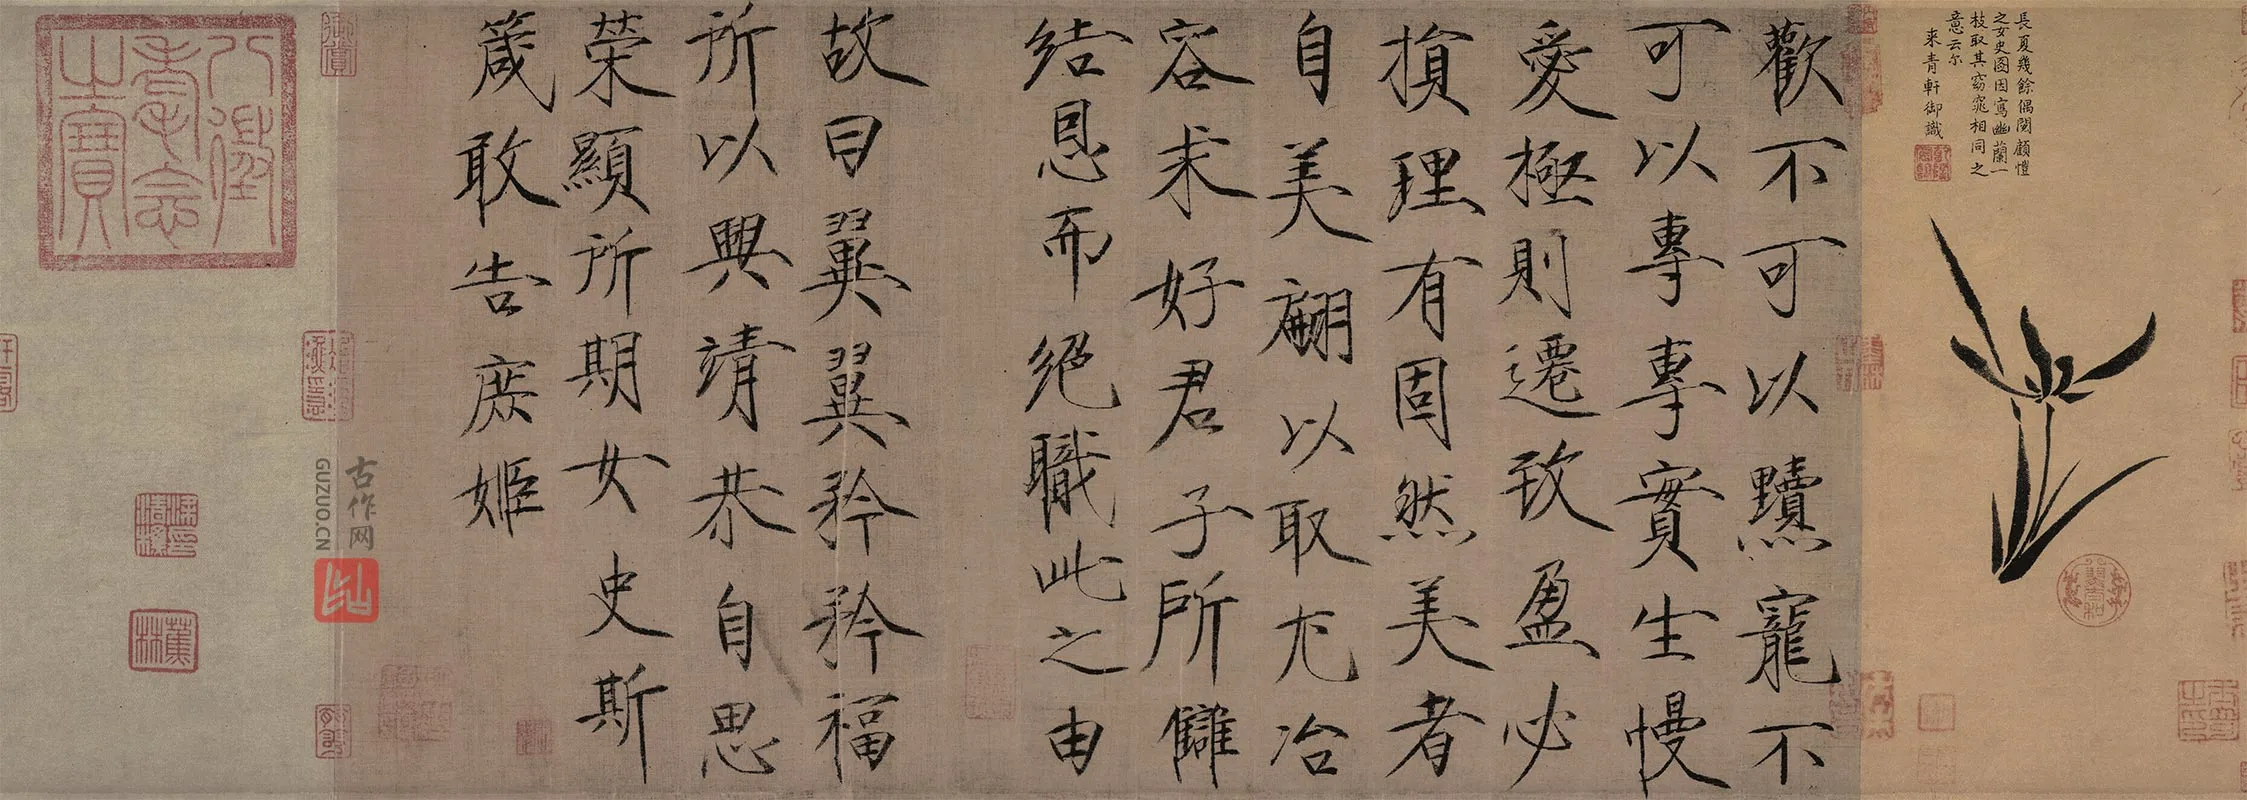 長夏幾餘偶閱顧愷
之女史圖因寫幽蘭一
枝取其窈窕相同之
意云尓
来青軒御識
歡不可以黷寵不
可以專專實生慢
愛極則遷致盈必
損理有固然美者
自美翩以取尤冶
容求好君子所讎
結恩而絕職此之由
故曰翼翼矜矜福
所以興靖恭自思
榮顯所期女史斯
箴敢告庶姬
御賞
八徵
耄念
之寶
蕉林
古作网
GUZUO.CN